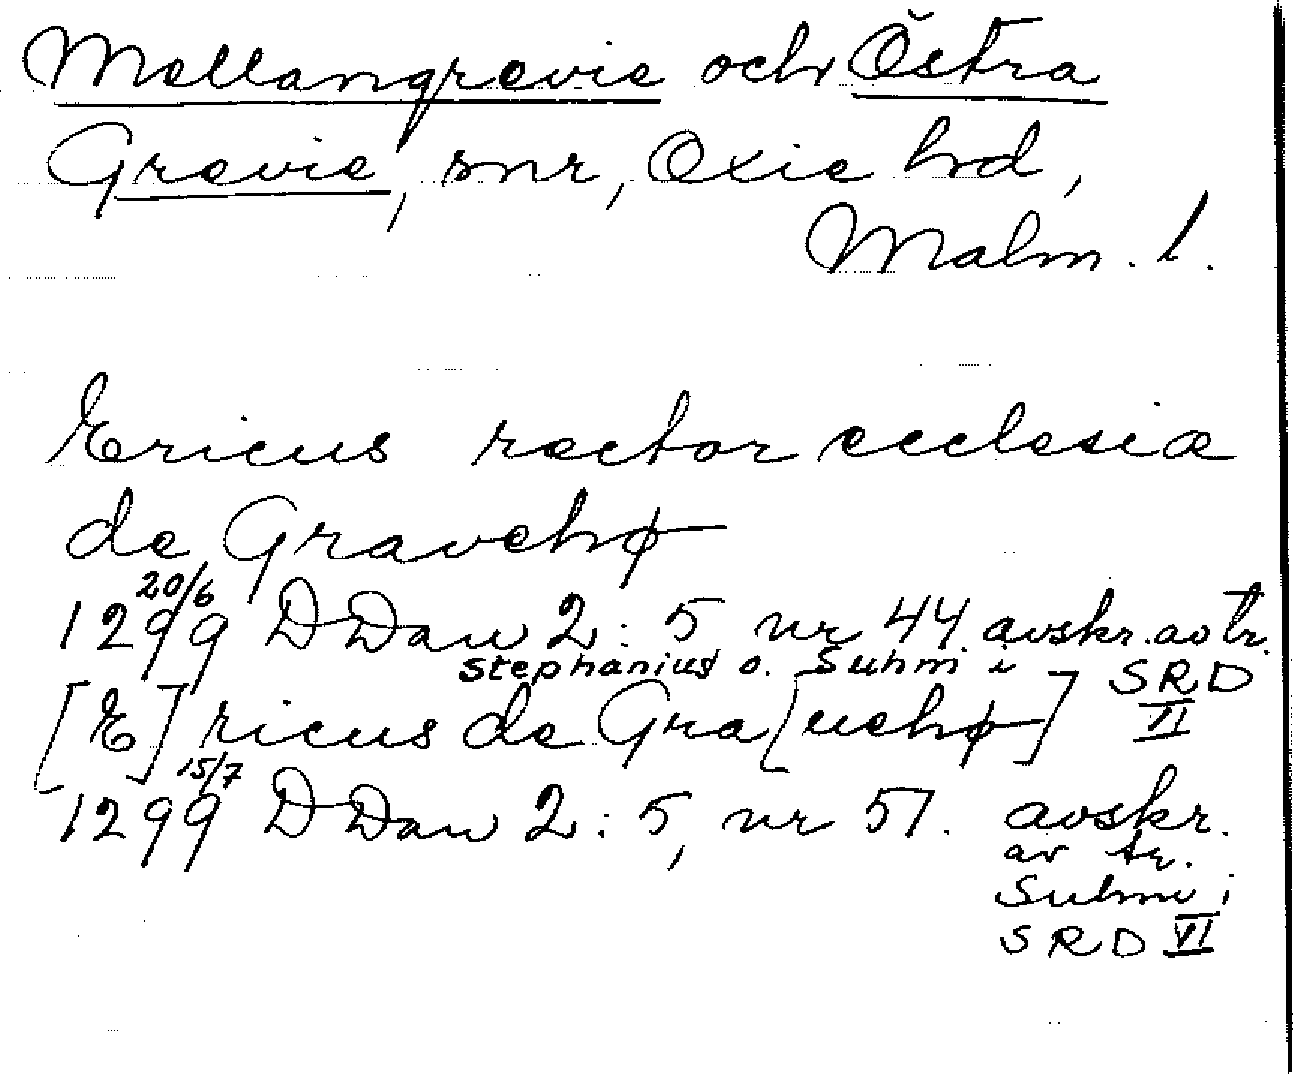 Mellangrevie och Östra
Grevie, snr, Oxie hd,
Malm. l.
Ericus rector ecclesiæ
de Gravehø
20/6
1299 DDan 2: 5 nr 44. avskr. av tr.
Stephanius o. Suhm i SRD
VI
[E]ricus de Gra[uehø]
15/7
1299 DDan 2: 5, nr 51. avskr.
av tr.
Suhm i
SRD VI